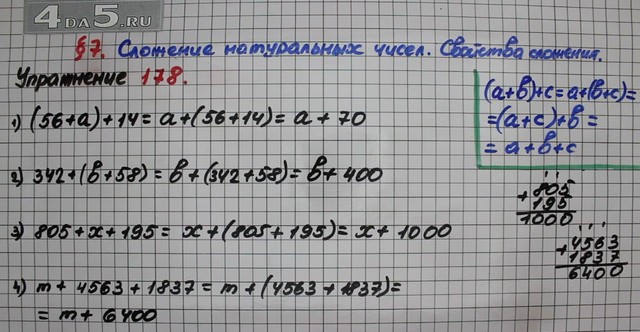 4DA5.RU
§7. Сложение натуральных чисел. Свойства сложения.
Упражнение 178.
(a+b)+c=a+(b+c)=
=(a+c)+b=
=a+b+c
1) (56+a)+14=a+(56+14)=a+70
2) 342+(b+58)=b+(342+58)=b+400
3) 805+x+195=x+(805+195)=x+1000
4) m+4563+1837=m+(4563+1837)=
=m+6400
805
+
195
1000
4563
+
1837
6400